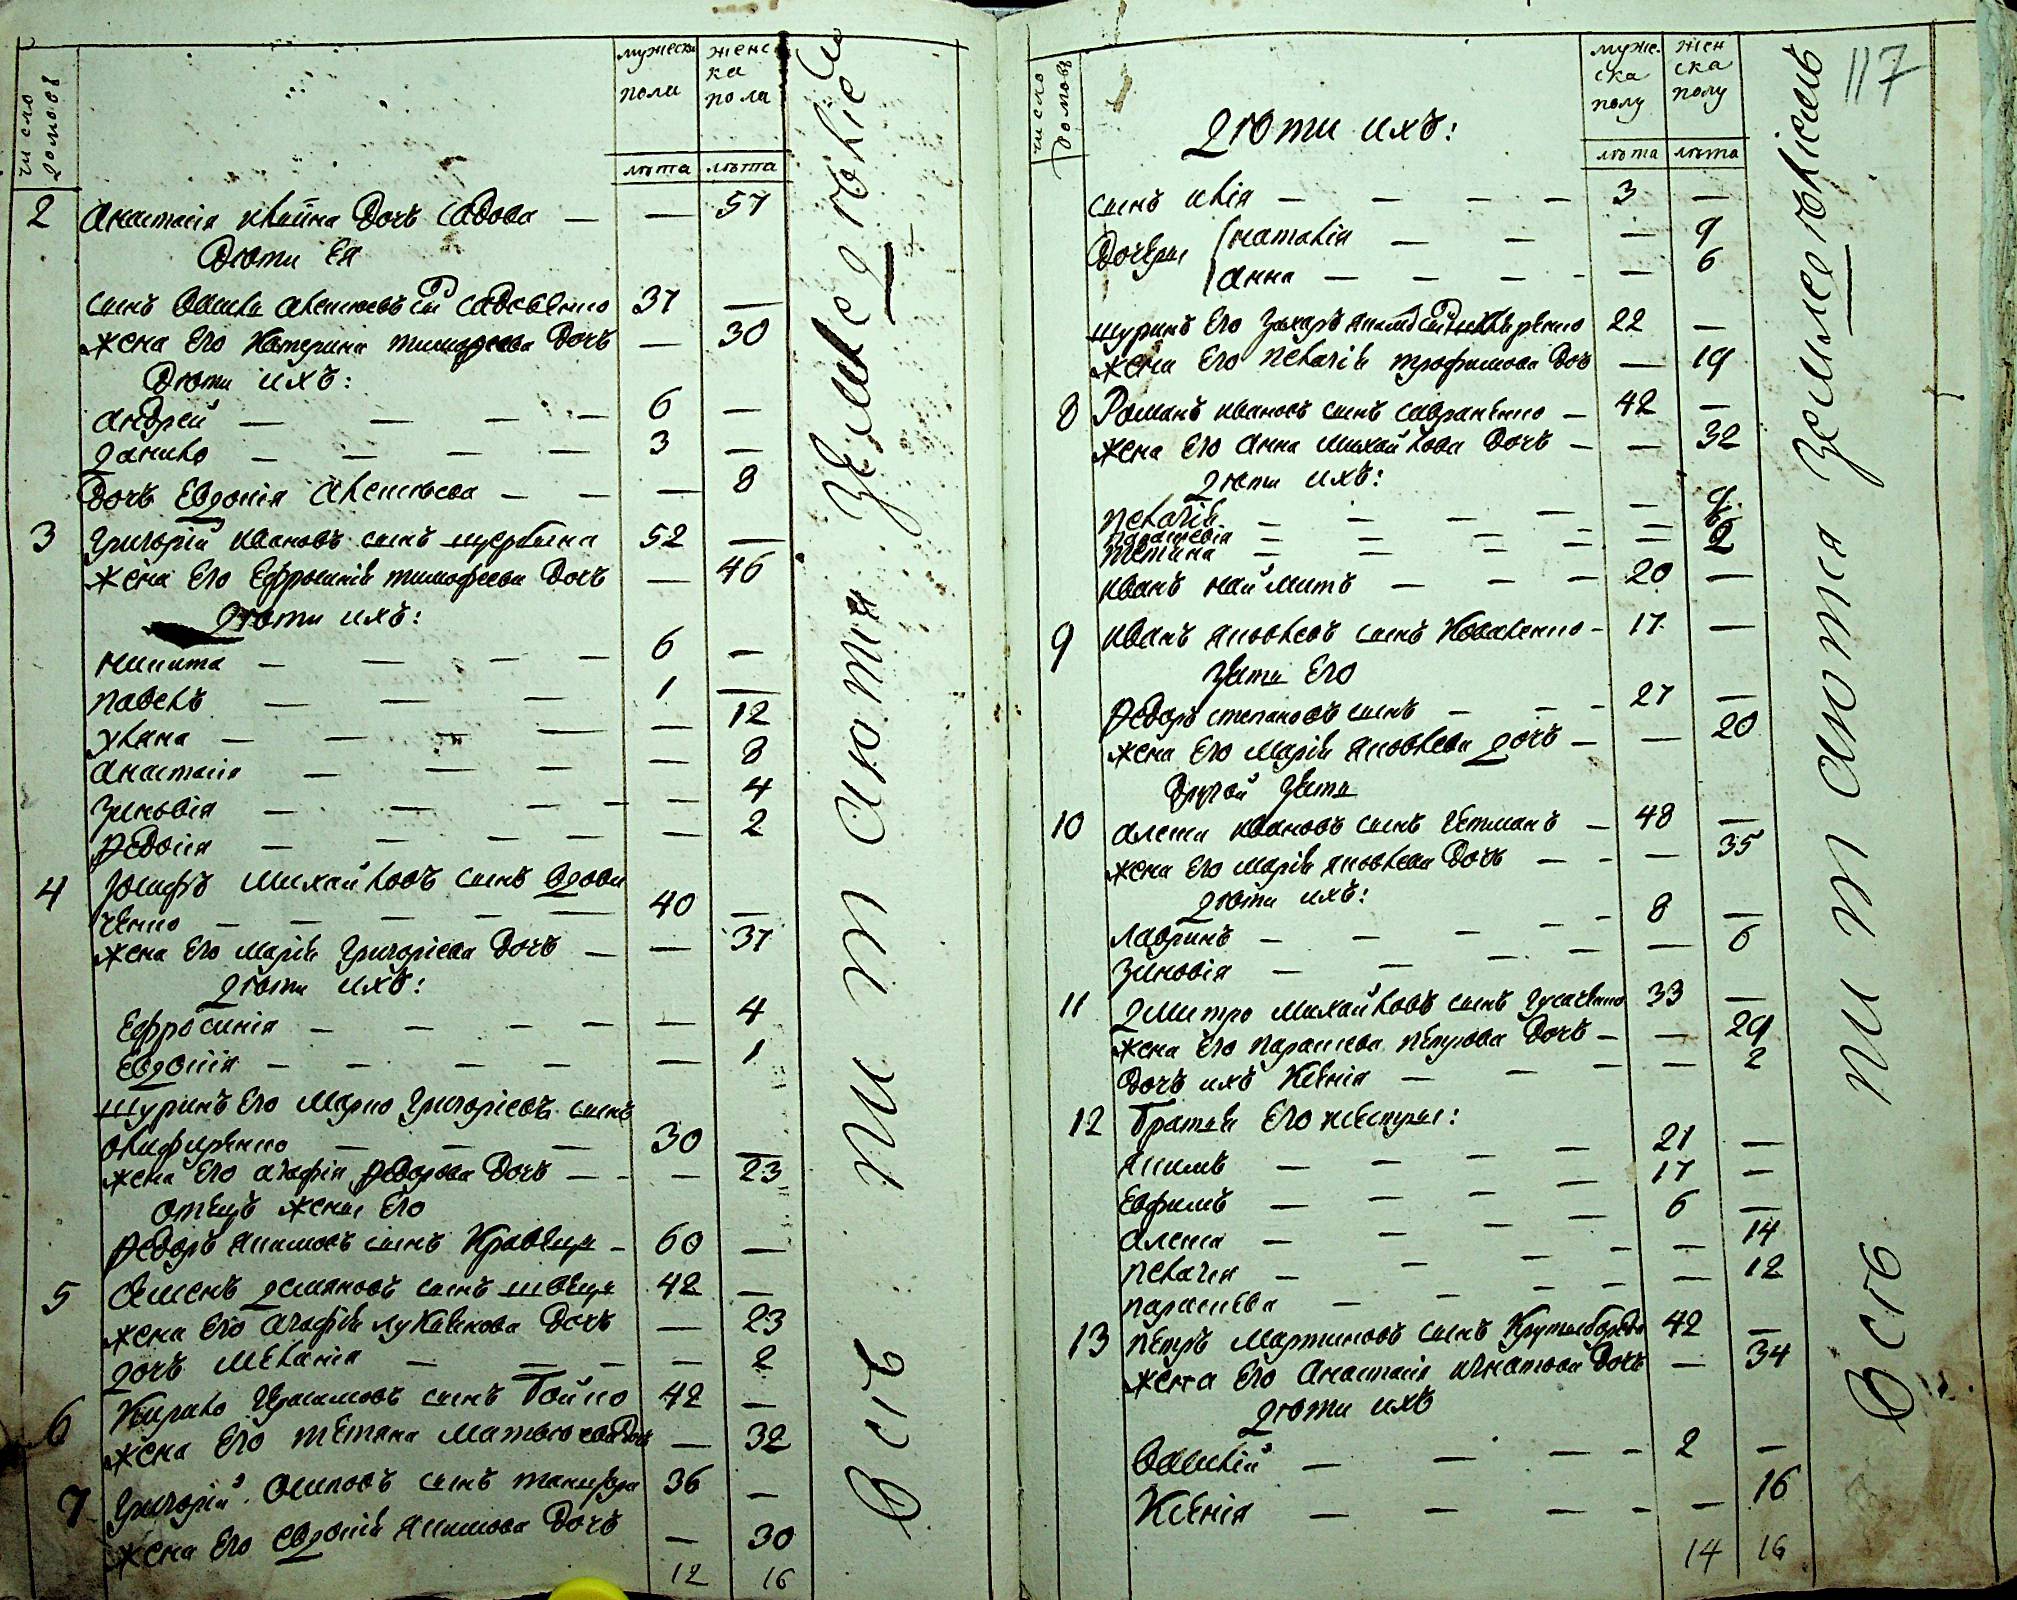 число домовъ
мужеска пола
женска пола
лѣта лѣта
2 Анастасія дочь Садова — — 57
Дѣти Ея
сынъ Василь Алексѣевъ сы Садовенко 37 —
жена Его Катерина тимофеева Дочь — 30
Дѣти ихъ:
андрей — — — — 6 —
данило — — — — 3 —
Дочь Евдокія Алексѣева — — — 8
3 Григорій Ивановъ сынъ щербина 52 —
жена Его Ефросинія тимофеева Дочь — 46
Дѣти ихъ:
никита — — — — 6 —
павелъ — — — 1 —
уляна — — — — — 12
анастасія — — — — 8
зиновія — — — — — 4
федосия — — — — — 2
4 Іосифъ Михайловъ сынъ Вдови
ченко — — — — — 40 —
жена Его Марія Григоріева Дочь — — 37
дѣти ихъ:
Ефросинія — — — — — 4
Евдокія — — — — — 1
шуринъ Его Марко Григоріевъ сынъ
Олифиренко — — — 30 —
жена Его агафія федорова Дочь — — 23
отецъ жены Его
федоръ Акимовъ сынъ Кравецъ — 60 —
5 Семенъ демяновъ сынъ швецъ 42 —
жена Его Агафія лукянова Дочь — 23
дочь Меланія — — — — 2
6 Кирило Герасимовъ сынъ Бойко 42 —
жена Его тетяна Матвѣева Дочь — 32
7 Григорій Осиповъ сынъ танцюра 36 —
жена Его Евдокія Акимова Дочь — 30
12 16
всѣ питаются Земледѣліемъ
117
число домовъ
мужеска полу
женска полу
лѣта лѣта
дѣти ихъ:
сынъ илія — — — — 3 —
Дочери наталія — — — 9
анна — — — — — 6
шуринъ Его Захаръ 22 —
жена Его пелагія трофимова Доч — 19
8 Романъ ивановъ сынъ Савраненко — 42 —
жена Его Анна Михайлова Дочь — — 32
дѣти ихъ:
пелагія — — — — —
параскевія — — — — —
тетяна — — — — — 2
иванъ наймитъ — — — 20 —
9 иванъ яковлевъ сынъ Коваленко — 17 —
Зяти Его
федоръ степановъ сынъ — — — 27 —
жена Его Марія яковлева дочь — — 20
другой зять
10 алексей ивановъ сынъ Гетманъ — 48 —
жена Его Марія яковлева Дочь — — — 35
дѣти ихъ:
лавринъ — — — — — 8 —
зиновія — — — — — 6
11 дмитро Михайловъ сынъ Гусаченко 33 —
жена Его параскева петрова Дочь — — 29
Дочь ихъ Ксенія — — — — 2
12 Братья Его и сестры:
якимъ — — — — 21 —
Евфимъ — — — — 17 —
алексей — — — — 6 —
пелагия — — — — — 14
параскева — — — — — 12
13 петръ Мартиновъ сынъ Крутибородъ 42 —
жена Его Анастасія игнатова Дочь — 34
дѣти ихъ
Василій — — — — 2 —
Ксенія — — — — — 16
14 16
Всѣ питаются земледѣліемъ